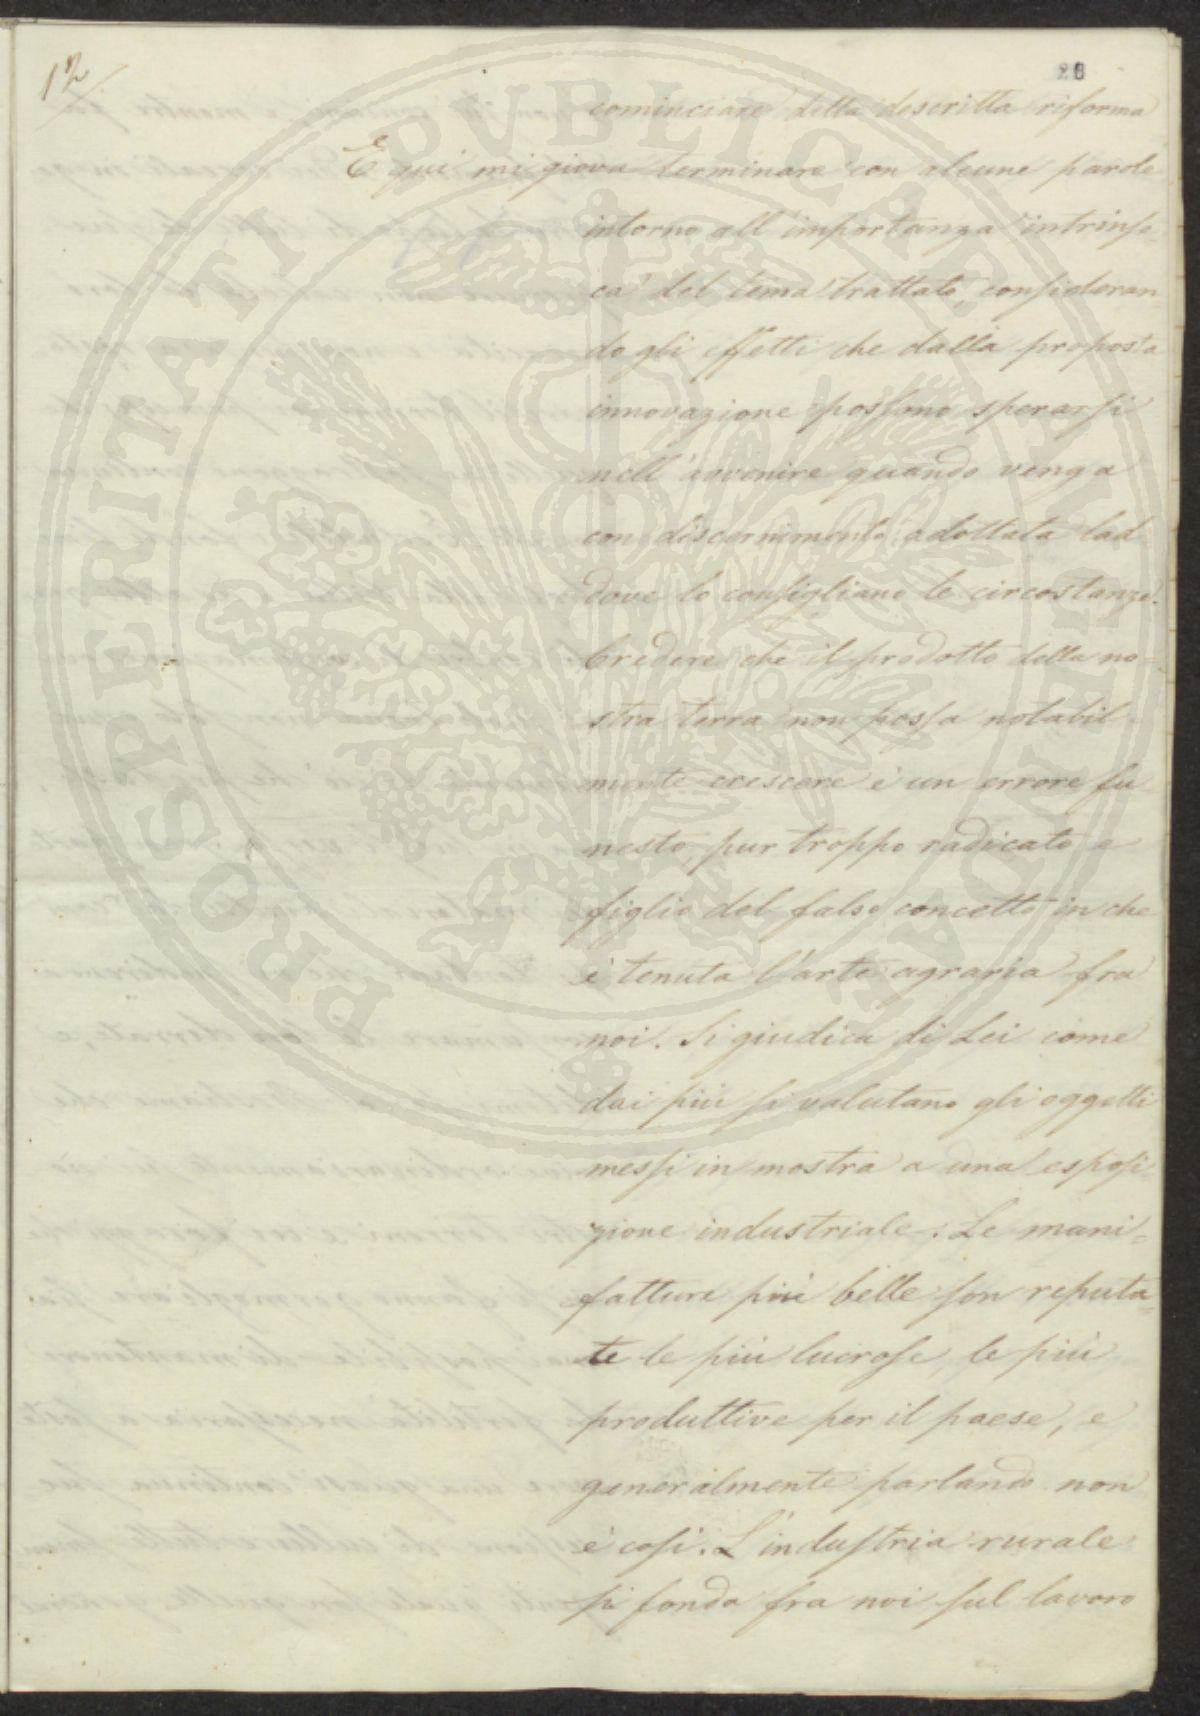 12
28
cominciare della descritta riforma
E qui mi giova terminare con alcune parole
intorno all'importanza intrinse-
ca del tema trattato, consideran-
do gli effetti che dalla proposta
innovazione possono sperarsi
nell'avvenire quando venga
con discernimento adottata lad
dove lo consigliano le circostanze.
Credere che il prodotto della no-
stra terra non possa notabil-
mente crescere è un errore fu-
nesto, pur troppo radicato e
figlio del falso concetto in che
è tenuta l'arte agraria fra
noi. Si giudica di Lei come
dai più si valutano gli oggetti
messi in mostra a una esposi-
zione industriale. Le mani=
fatture più belle son reputa=
te le più lucrose, le più
produttive per il paese, e
generalmente parlando non
è così. L'industria rurale
si fonda fra noi sul lavoro
PROSPERITATI PUBLICAE AUGENDAE